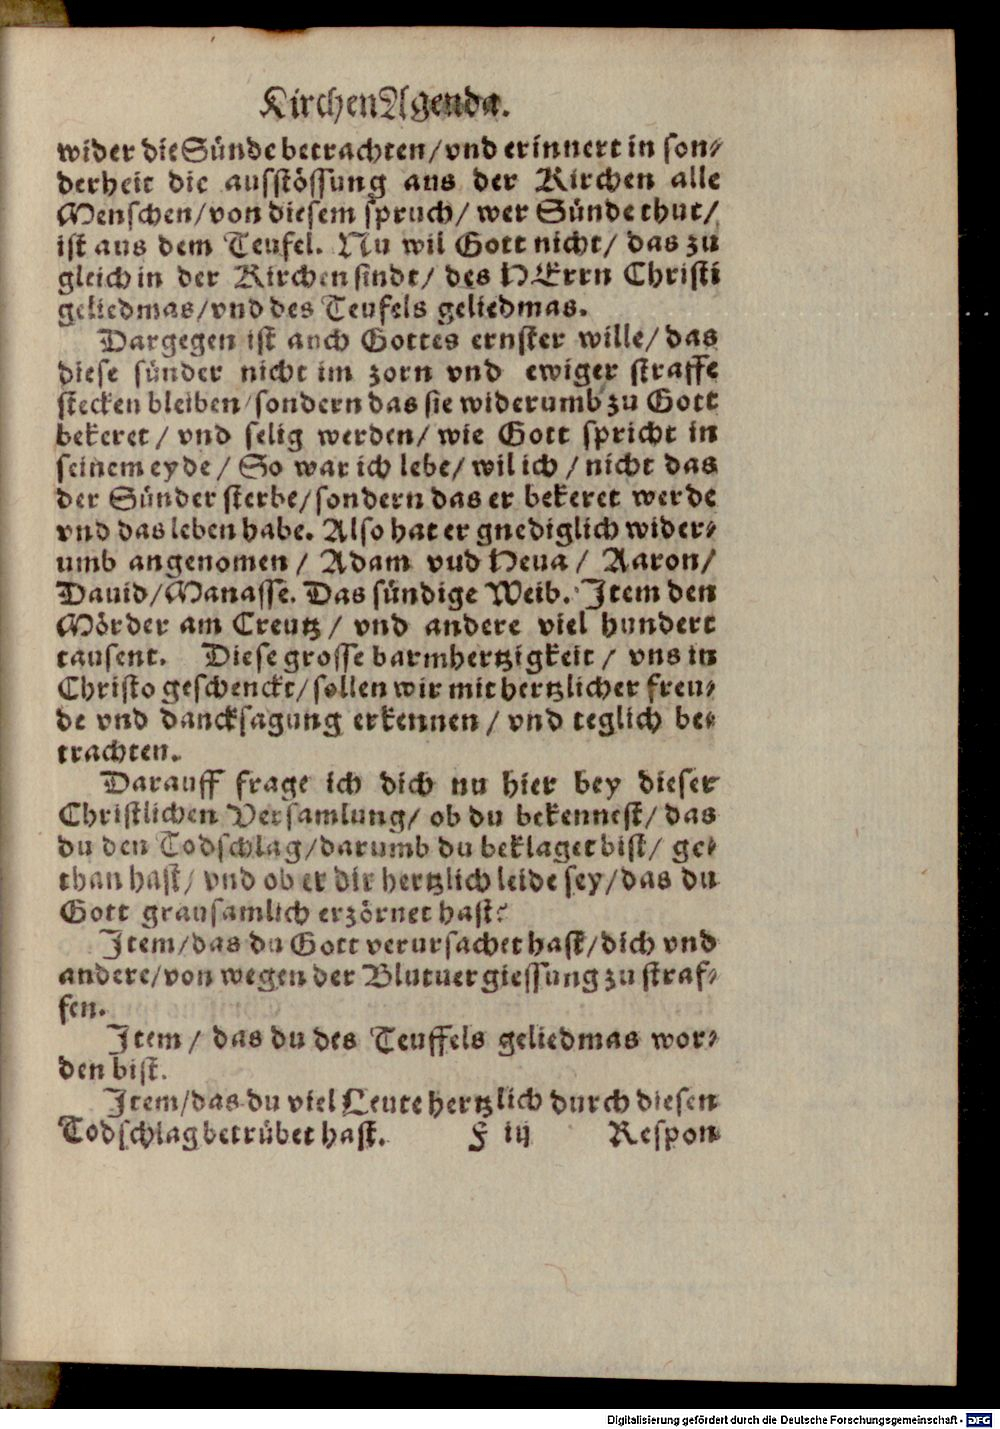 KirchenAgenda.
wider die Sünde betrachten/vnd erinnert in son-
derheit die ausstössung aus der Kirchen alle
Menschen/von diesem spruch/wer Sünde thut/
ist aus dem Teufel. Nu wil Gott nicht/das zu
gleich in der Kirchen sindt/des HErrn Christi
geliedmas/vnd des Teufels geliedmas.
Dargegen ist auch Gottes ernster wille/das
diese sünder nicht im zorn vnd ewiger straffe
stecken bleiben/sondern das sie widerumb zu Gott
bekeret/vnd selig werden/wie Gott spricht in
seinem eyde/So war ich lebe/wil ich/nicht das
der Sünder sterbe/sondern das er bekeret werde
vnd das leben habe. Also hat er gnediglich wider-
umb angenomen/Adam vud Heua/Aaron/
Dauid/Manasse. Das sündige Weib. Item den
Mörder am Creutz/vnd andere viel hundert
tausent. Diese grosse barmhertzigkeit/vns in
Christo geschenckt/sollen wir mit hertzlicher freu-
de vnd dancksagung erkennen/vnd teglich be-
trachten.
Darauff frage ich dich nu hier bey dieser
Christlichen Versamlung/ob du bekennest/das
du den Todschlag/darumb du beklaget bist/ge-
than hast/vnd ob er dir hertzlich leide sey/das du
Gott grausamlich erzörnet hast?
Item/das du Gott verursachet hast/dich vnd
andere/von wegen der Blutuergiessung zu straf-
fen.
Item/das du des Teuffels geliedmas wor-
den bist.
Item/das du viel Leute hertzlich durch diesen
Todschlag betrübet hast. F iij Respon
Digitalisierung gefördert durch die Deutsche Forschungsgemeinschaft - DFG